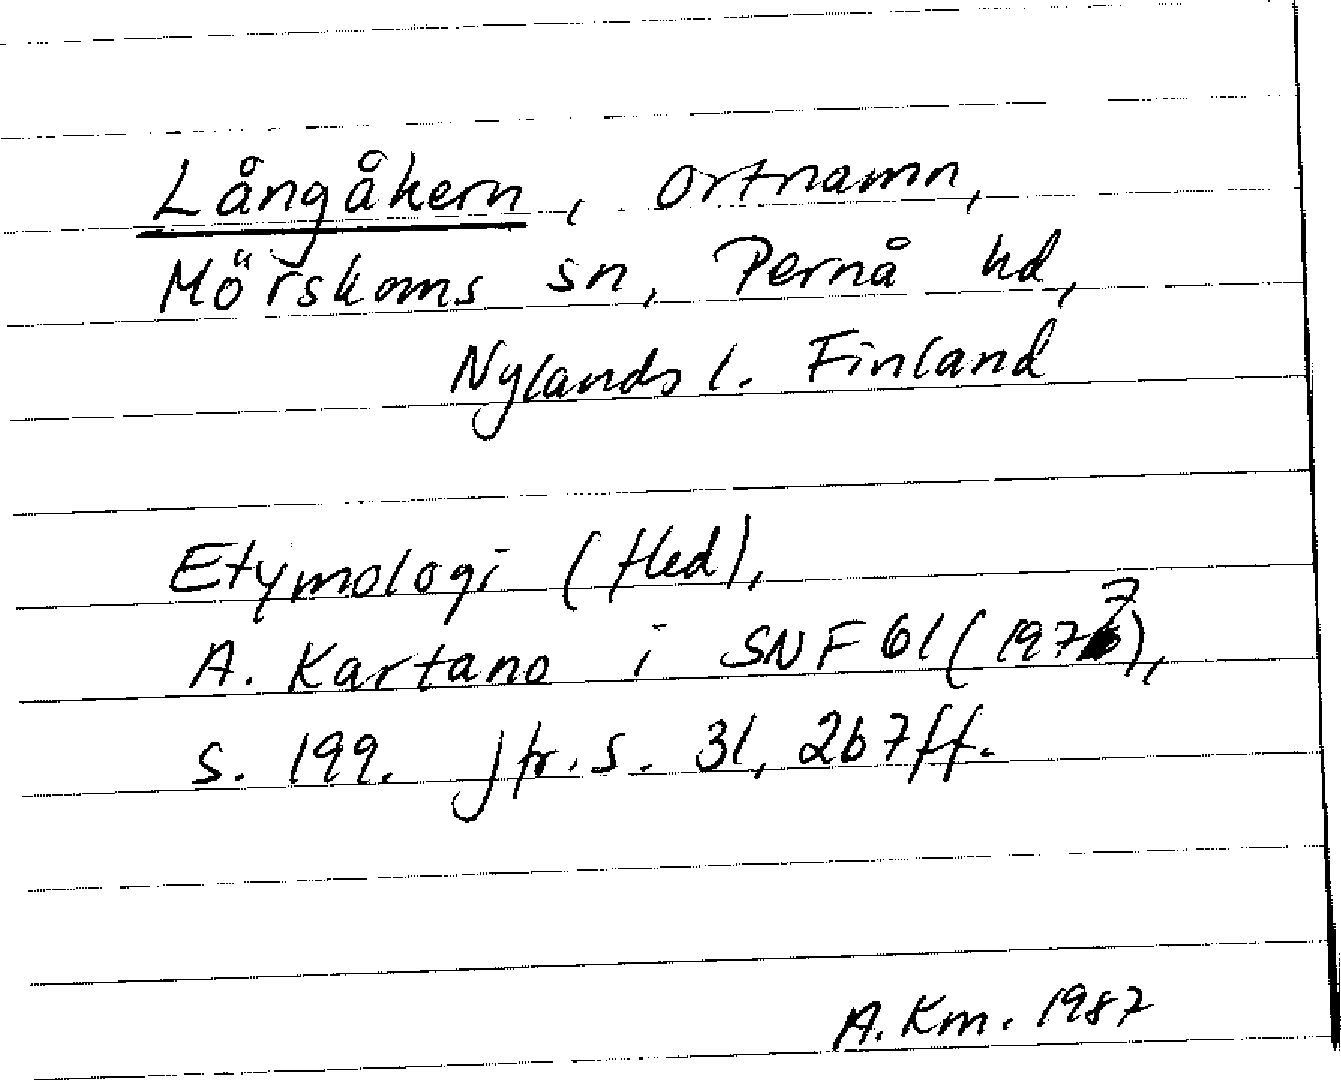 Långåkern, ortnamn,
Mörskoms sn, Pernå hd,
Nylands l. Finland
Etymologi (fled),
A. Kartano i SNF 61 (1977),
s. 199. Jfr. s. 31, 267 ff.
A. Km. 1987